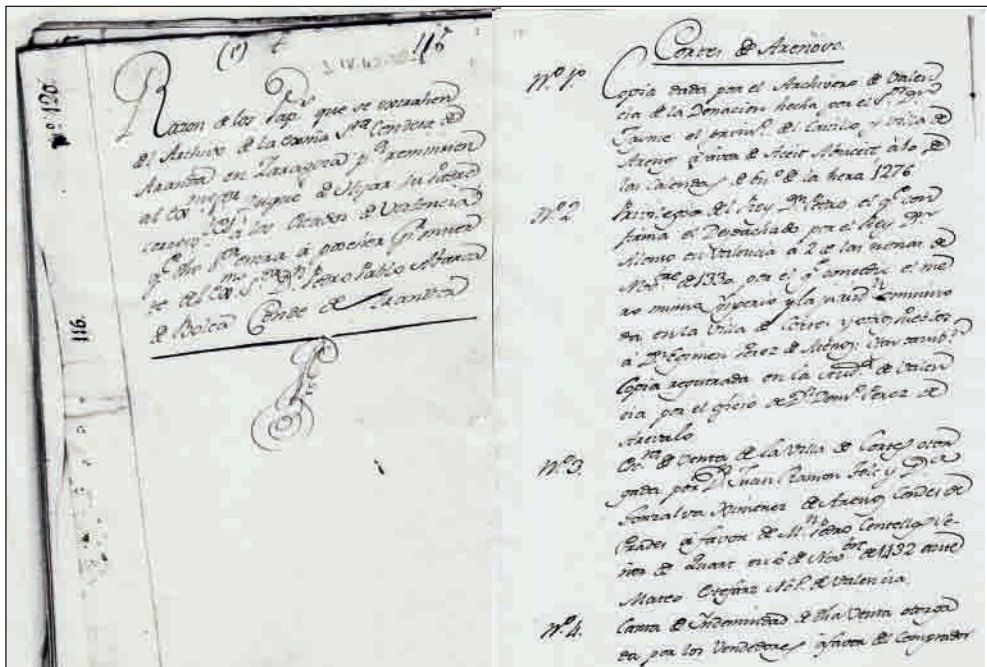 Nº. 120.
116.
(1º) 116
Razon de los Pap.s que se extrahen
del Archivo de la Exma Sra Condesa de
Aranda en Zaragoza pª remitirlos
al Exmo Duque de Hijar
los Estados de Valencia
qe dho Sr entra à poseher
te del Exmo Sr Dn Pedro Pablo Abarca
de Bolea Conde de Aranda
Cortes de Arenoso.
Nº. 1º. Copia dada por el Archivero de Valen
cia de la Donacion hecha por el Sr. Dn.
Jayme el del Castillo y Villa de
Arenos à favor de Aceit Abuceit à lo de
las Calendas de de la hera 1276
Nº. 2. Privilegio del Rey Dn Pedro el qe con
firma el Despachado por el Rey Dn
Alonso en Valencia à 2 de las nonas de
Nobre de 1330, por el qe el me
ro mixto imperio y la
da en la Villa de Cortes y otros Pueblos
á Dn Eximen Perez de Arenos:
Copia registrada en la Ciudd de Valen
cia por el oficio de Dn Domo Perez de
Arevalo
Nº. 3. Esra de Venta de la Villa de Cortes otor
gada por Dn Juan Ramon Folc y Da
Gonzalva Ximenez de Arenos Condes de
Prades à favor de Mn Pedro Centelles Se-
ñor de en 6 de Nobre de 1432 ante
Mateo de Valencia
Nº. 4. Carta de Indemnidad de dha Venta otorga
da por los Vendedores à favor del Comprador